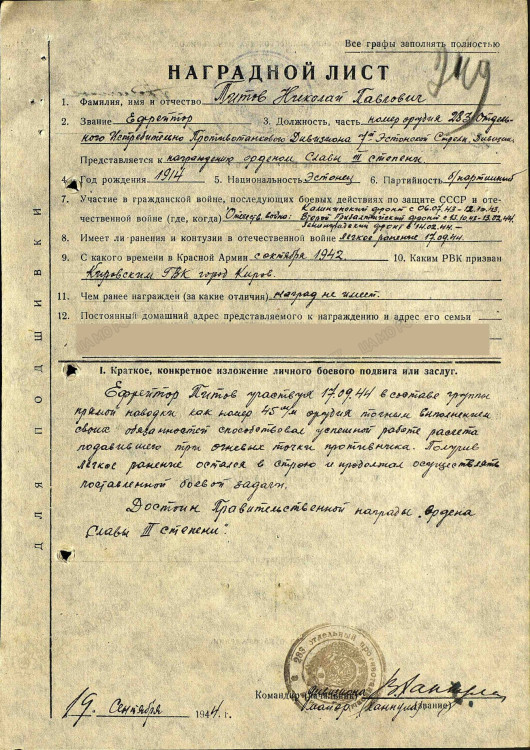 Все графы заполнять полностью
НАГРАДНОЙ ЛИСТ
1. Фамилия, имя и отчество Титов Николай Павлович
2. Звание Ефрейтор 3. Должность, часть номер орудия 283 Отдель-
ного Истребительно Противотанкового Дивизиона 7ой Эстонской Стрелк. Дивизии
Представляется к награждению орденом Славы III степени.
4. Год рождения 1914 5. Национальность Эстонец 6. Партийность б/партийный
7. Участие в гражданской войне, последующих боевых действиях по защите СССР и оте-
чественной войне (где, когда) Отечеств. война: Калининский фронт с 06.07.43-12.10.43.
Второй Прибалтийский фронт с 13.10.43-13.02.44.
Ленинградский фронт с 14.02.44.-
8. Имеет ли ранения и контузии в отечественной войне легкое ранение 17.09.44.
9. С какого времени в Красной Армии с октября 1942 10. Каким РВК призван
Кировским ГВК город Киров.
11. Чем ранее награжден (за какие отличия) наград не имеет.
12. Постоянный домашний адрес представляемого к награждению и адрес его семьи
I. Краткое, конкретное изложение личного боевого подвига или заслуг.
Ефрейтор Титов участвуя 17.09.44 в составе группы
прямой наводки как номер 45 м/м орудия точным выполнением
своих обязанностей способствовал успешной работе расчета
подавившего три огневых точки противника. Получив
легкое ранение остался в строю и продолжал осуществлять
поставленной боевой задачи.
Достоин Правительственной награды "Ордена
Славы III степени".
283 отдельный
Командир (начальник) дивизиона
майор (звание)
19. Сентября 1944 г.
ДЛЯ ПОДШИВКИ